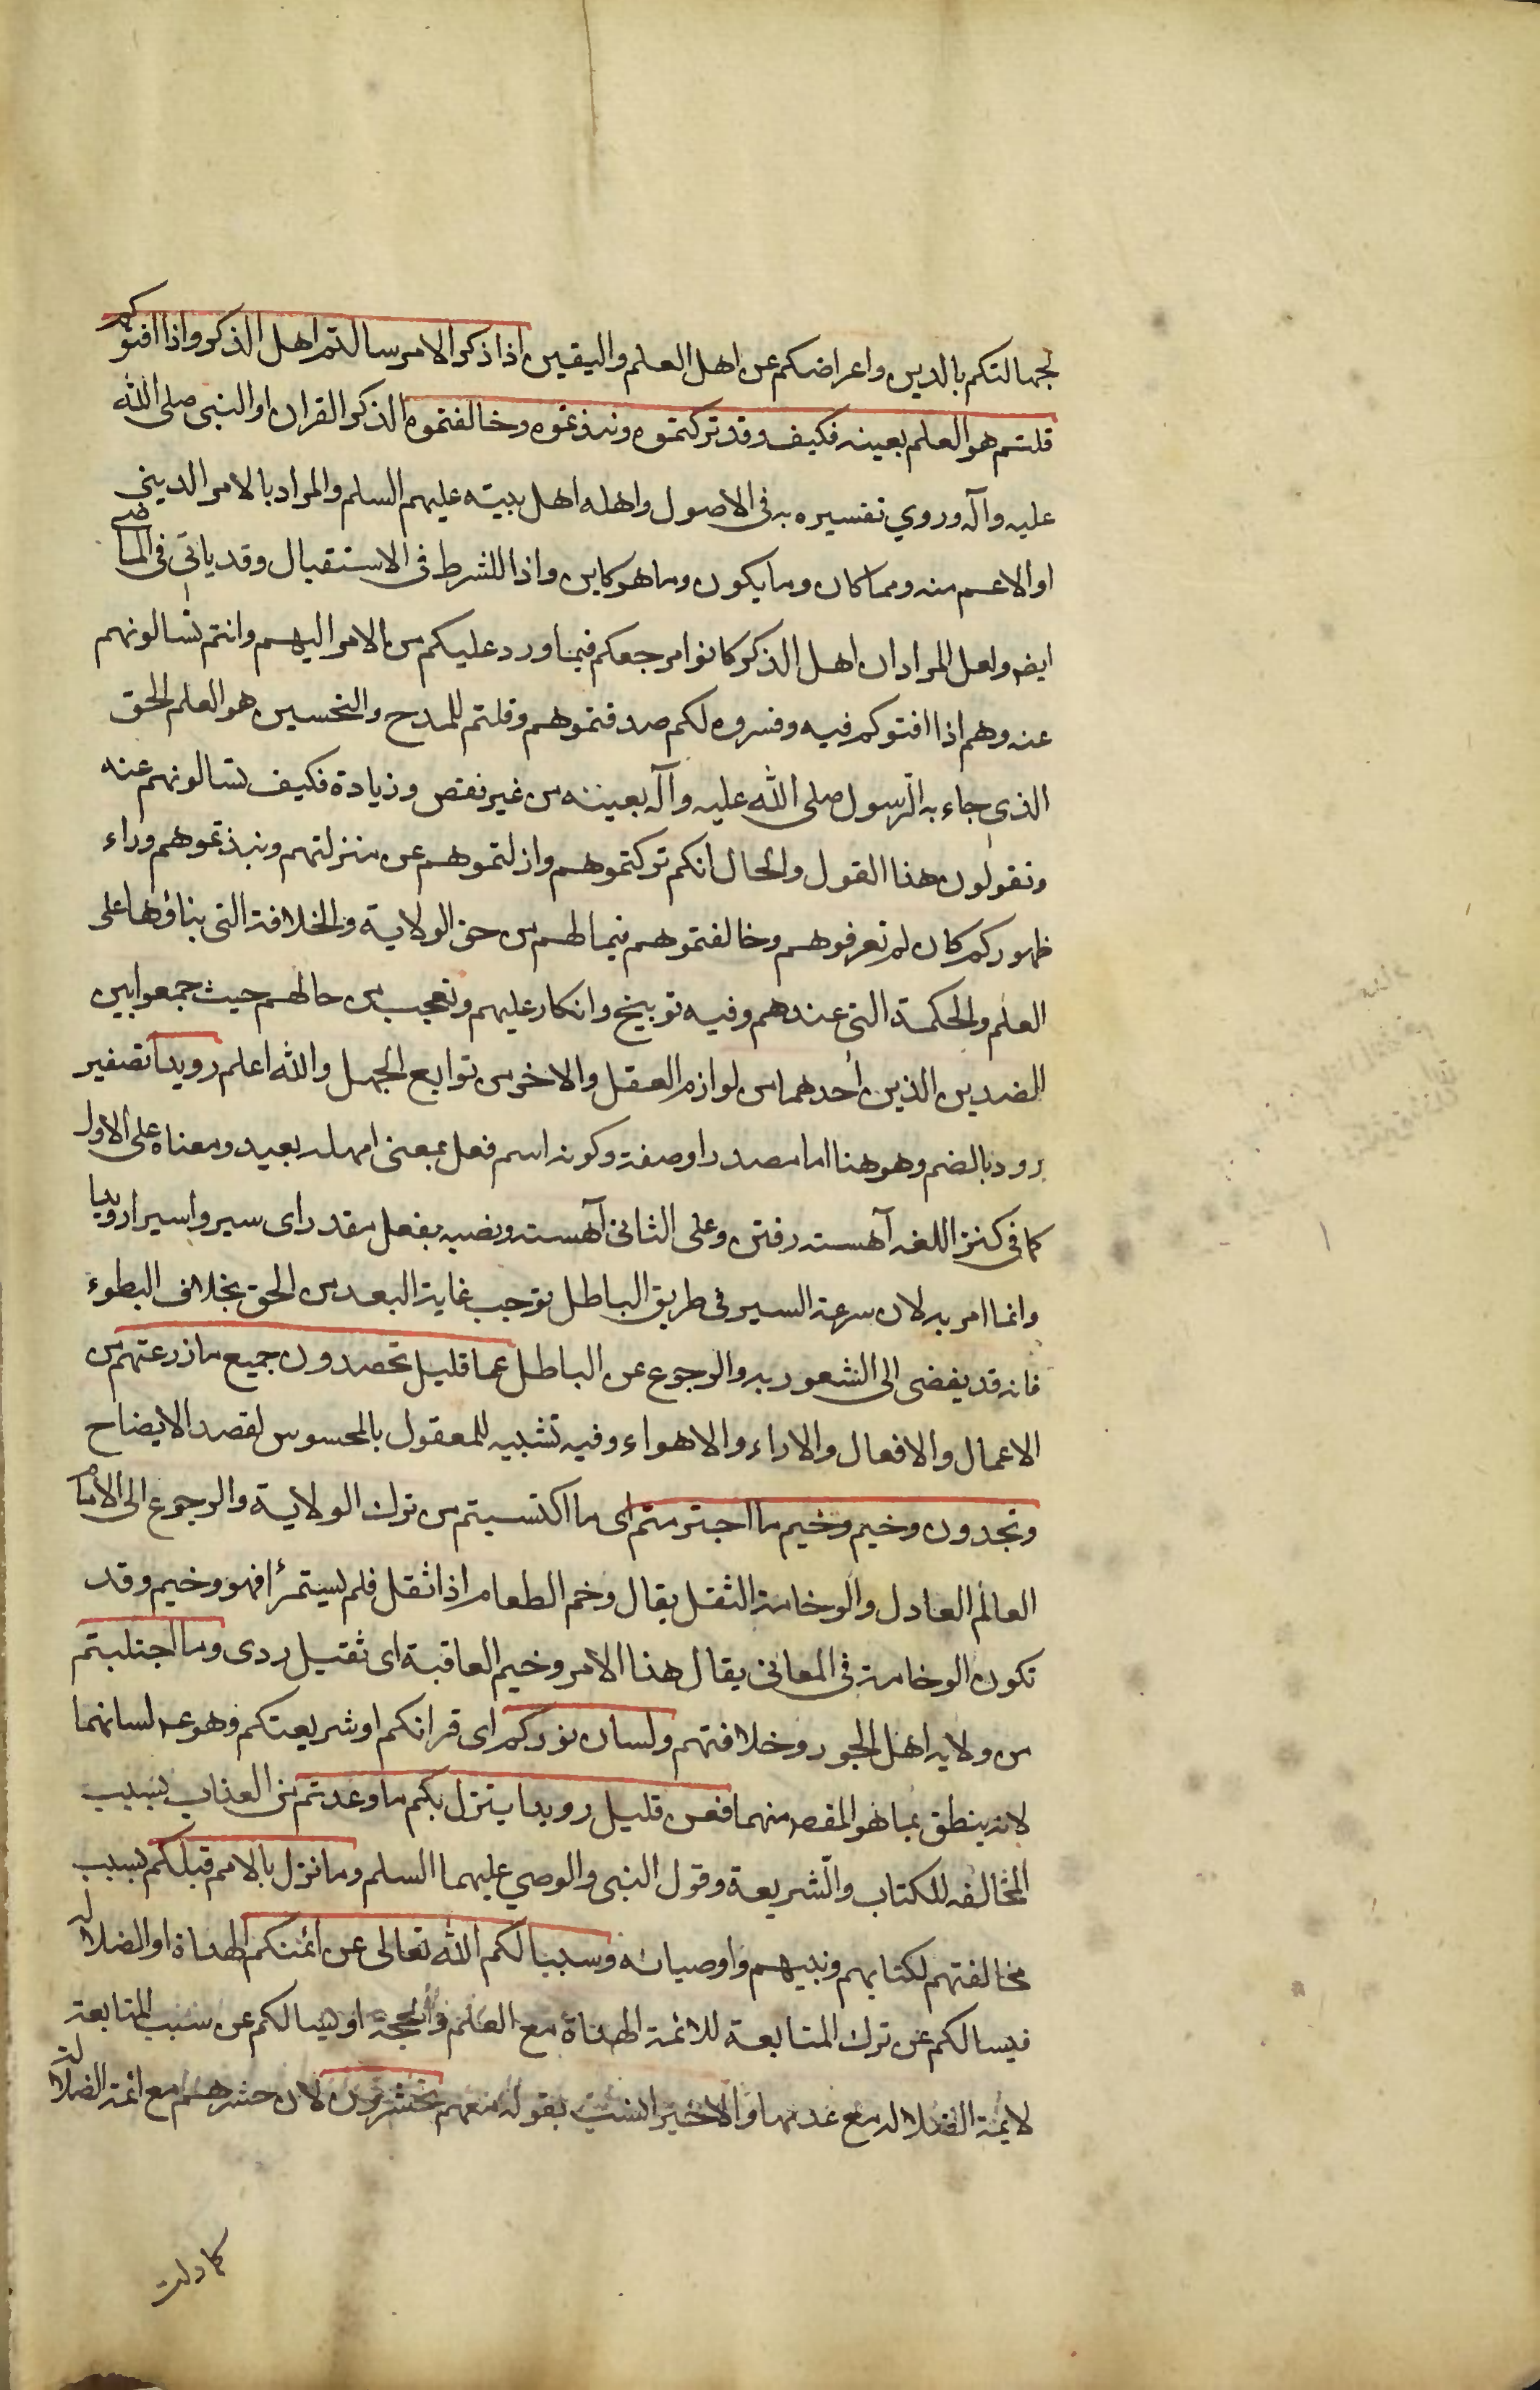 لجهالتكم بالدين واعراضكم عن اهل العلم واليقين اذا ذكر الامر سالتم اهل الذكر واذا افتوكم
قلتم هو العلم بعينه فكيف وقد تركتموه ونبذتموه وخالفتموه الذكر القران او النبي صلى الله
عليه وآله وروي تفسيره به في الاصول واهله اهل بيته عليهم السلم والمراد بالامر الديني
او الاعم منه ومما كان وما يكون وما هو كاين واذا للشرط في الاستقبال وقد ياتي في الماضي
ايض ولعل المراد ان اهل الذكر كانوا مرجعكم فيما ورد عليكم من الامر اليهم وانتم تسالونهم
عنه وهم اذا افتوكم فيه وفسروه لكم صدقتموهم وقلتم للمدح والتحسين هو العلم الحق
الذي جاء به الرسول صلى الله عليه وآله بعينه من غير نقص وزيادة فكيف تسالونهم عنه
وتقولون هذا القول والحال انكم تركتموهم وازلتموهم عن منزلتهم ونبذتموهم وراء
ظهوركم كان لم تعرفوهم وخالفتموهم فيما لهم من حق الولاية والخلافة التي بناؤها على
العلم والحكمة التي عندهم وفيه توبيخ وانكار عليهم وتعجب من حالهم حيث جمعوا بين
الضدين الذين احدهما من لوازم العقل والاخر من توابع الجهل والله اعلم رويدا تصغير
رود بالضم وهو هنا اما مصدر او صفة وكونه اسم فعل بمعنى امهله بعيد ومعناه على الاول
كما في كنز اللغه آهسته رفتن وعلى الثاني آهسته ونصبه بفعل مقدر اى سيروا سيرا رويدا
وانما امر به لان سرعة السير في طريق الباطل توجب غاية البعد من الحق بخلاف البطوء
فانه قد يفضى الى الشعور به والرجوع عن الباطل عما قليل تحصدون جميع ما زرعتم من
الاعمال والافعال والاراء والاهواء وفيه تشبيه للمعقول بالمحسوس لقصد الايضاح
وتجدون وخيم وخيم ما اجترمتم اى ما اكتسبتم من ترك الولاية والرجوع الى الامام
العالم العادل والوخامة الثقل يقال وخم الطعام اذا ثقل فلم يستمرأ فهو وخيم وقد
تكون الوخامة في المعاني يقال هذا الامر وخيم العاقبة اى ثقيل ردى وما اجتلبتم
من ولايه اهل الجور وخلافتهم ولسان نوركم اى قرانكم او شريعتكم وهو ع لسانهما
لانه ينطق بما هو المقص منهما فعن قليل رويدا ينزل بكم ما وعدتم من العذاب بسبب
المخالفه للكتاب والشريعة وقول النبي والوصي عليهما السلم وما نزل بالامم قبلكم بسبب
مخالفتهم لكتابهم ونبيهم واوصيائه وسيسالكم الله تعالى عن ائمتكم الهداة او الضلالة
فيسالكم عن ترك المتابعة للائمة الهداة مع العلم والحجة او يسالكم عن سبب المتابعة
لايمة الضلاله مع عدمها والاخير انسب بقوله معهم تحشرون لان حشرهم مع ائمة الضلالة
كما دلت